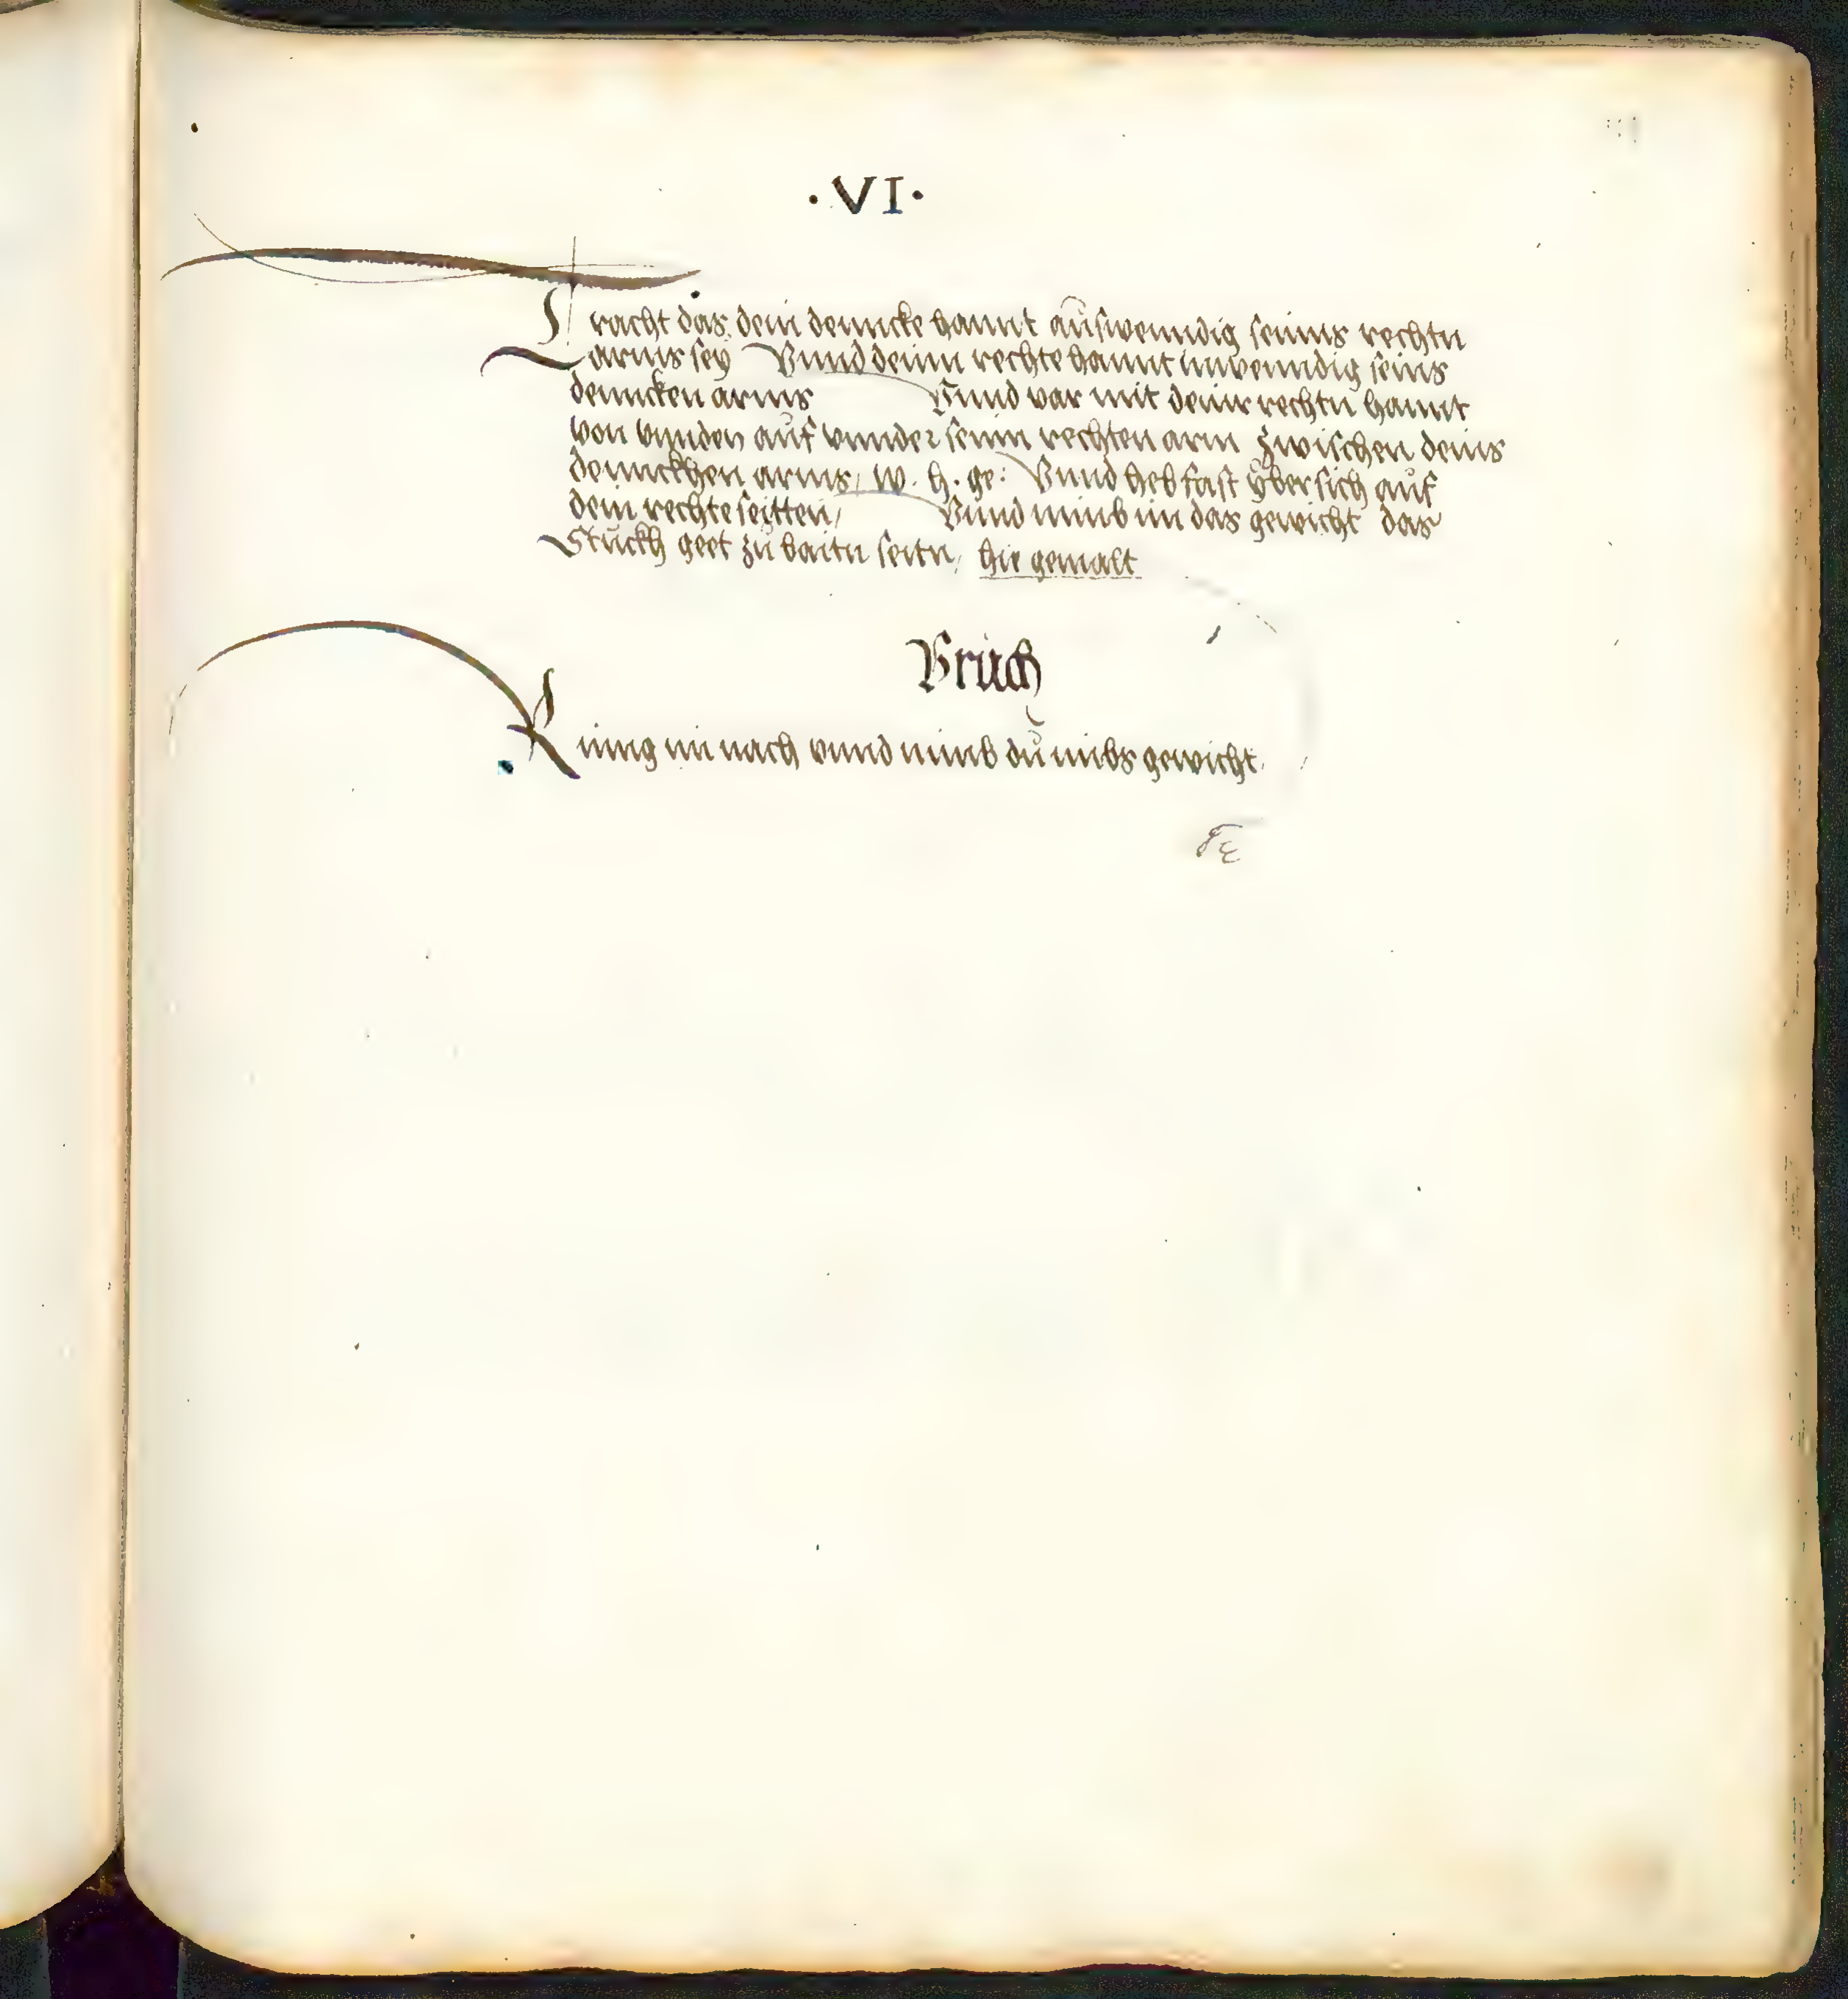 ·VI·
Tracht das dein denncke hannt aůswenndig seinns rechtn
arms seÿ Vnnd deinn rechte hannt inwenndig seins
denncken arms Vnnd var mit deinr rechtn hannt
von vnnden aůf vnnder seinn rechten arm zwischen deins
dennckhen arms, w. h. ge: Vnnd heb fast ÿber sich aůf
dein rechte seitten, Vnnd nimb im das gewicht das
Stůckh geet zů baitn seitn, hie gemalt
Brůch
Rinng im nach vnnd nimb dů imbs gewicht